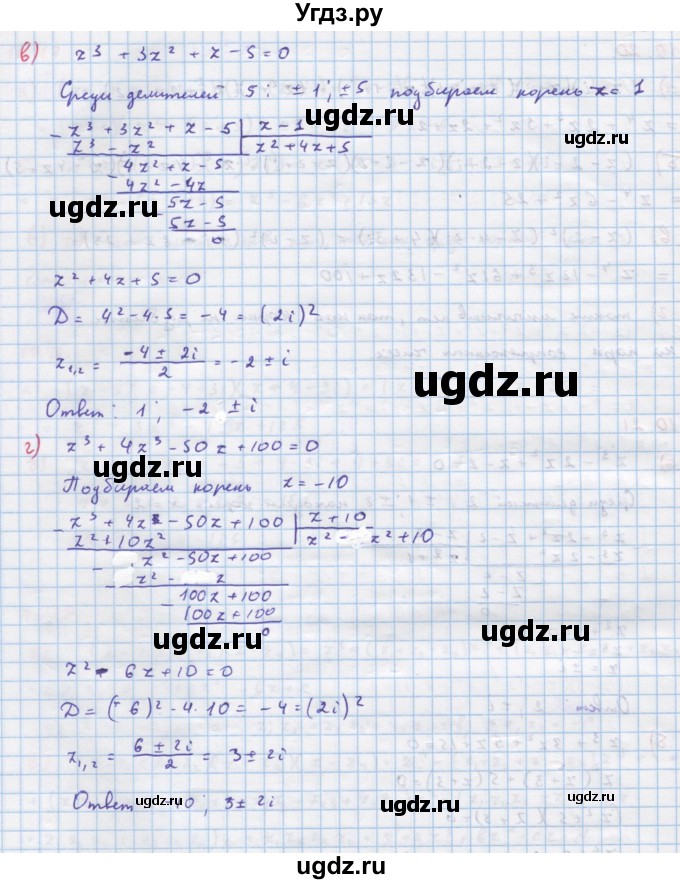 Угдз.ру
в) z³ + 3z² + z - 5 = 0
Среди делителей 5: ±1; ±5 подбираем корень z = 1
z³ + 3z² + z - 5 | z - 1
z³ - z² z² + 4z + 5
4z² + z - 5
4z² - 4z
ugdz.ru
5z - 5
5z - 5
0
ugdz.ru
z² + 4z + 5 = 0
D = 4² - 4·5 = -4 = (2i)²
z₁,₂ = (-4 ± 2i)/2 = -2 ± i
ugdz.ru
Ответ: 1; -2 ± i
г) z³ + 4z³ - 50z + 100 = 0
ugdz.ru
Подбираем корень z = -10
z³ + 4z - 50z + 100 | z + 10
z² + 10z² z² - z² + 10
z² - 50z + 100
z² - z
100z + 100
100z + 100
0
ugdz.ru
ugdz.ru
z² - 6z + 10 = 0
D = (- 6)² - 4·10 = -4 = (2i)²
z₁,₂ = (6 ± 2i)/2 = 3 ± 2i
Ответ 10; 3 ± 2i
ugdz.ru
ugdz.ru
ugdz.ru
ugdz.ru